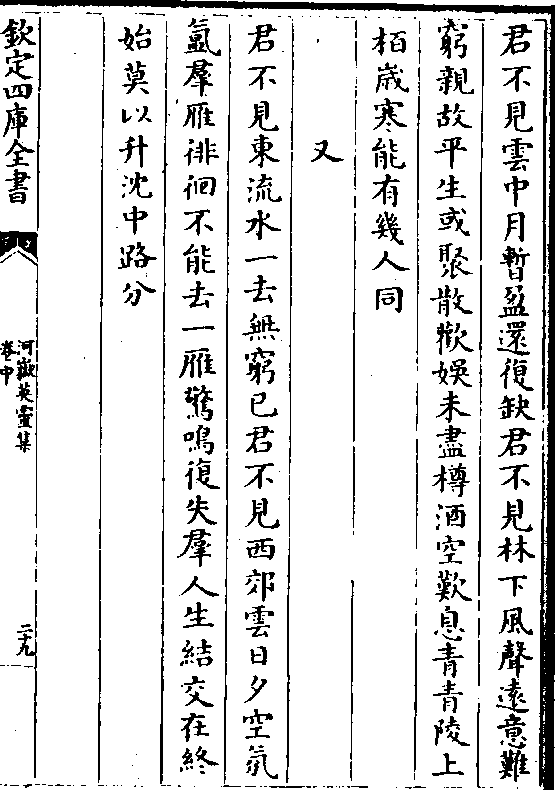 君不見雲中月暫盈還復缺君不見林下風聲遠意難
窮親故平生或聚散歡娛未盡樽酒空歎息青青陵上
栢歳寒能有幾人同
又
君不見東流水一去無窮已君不見西郊雲日夕空氛
氳羣雁徘徊不能去一雁驚鳴復失羣人生結交在終
始莫以升沈中路分
欽定四庫全書
河嶽英靈集
卷中
二十九